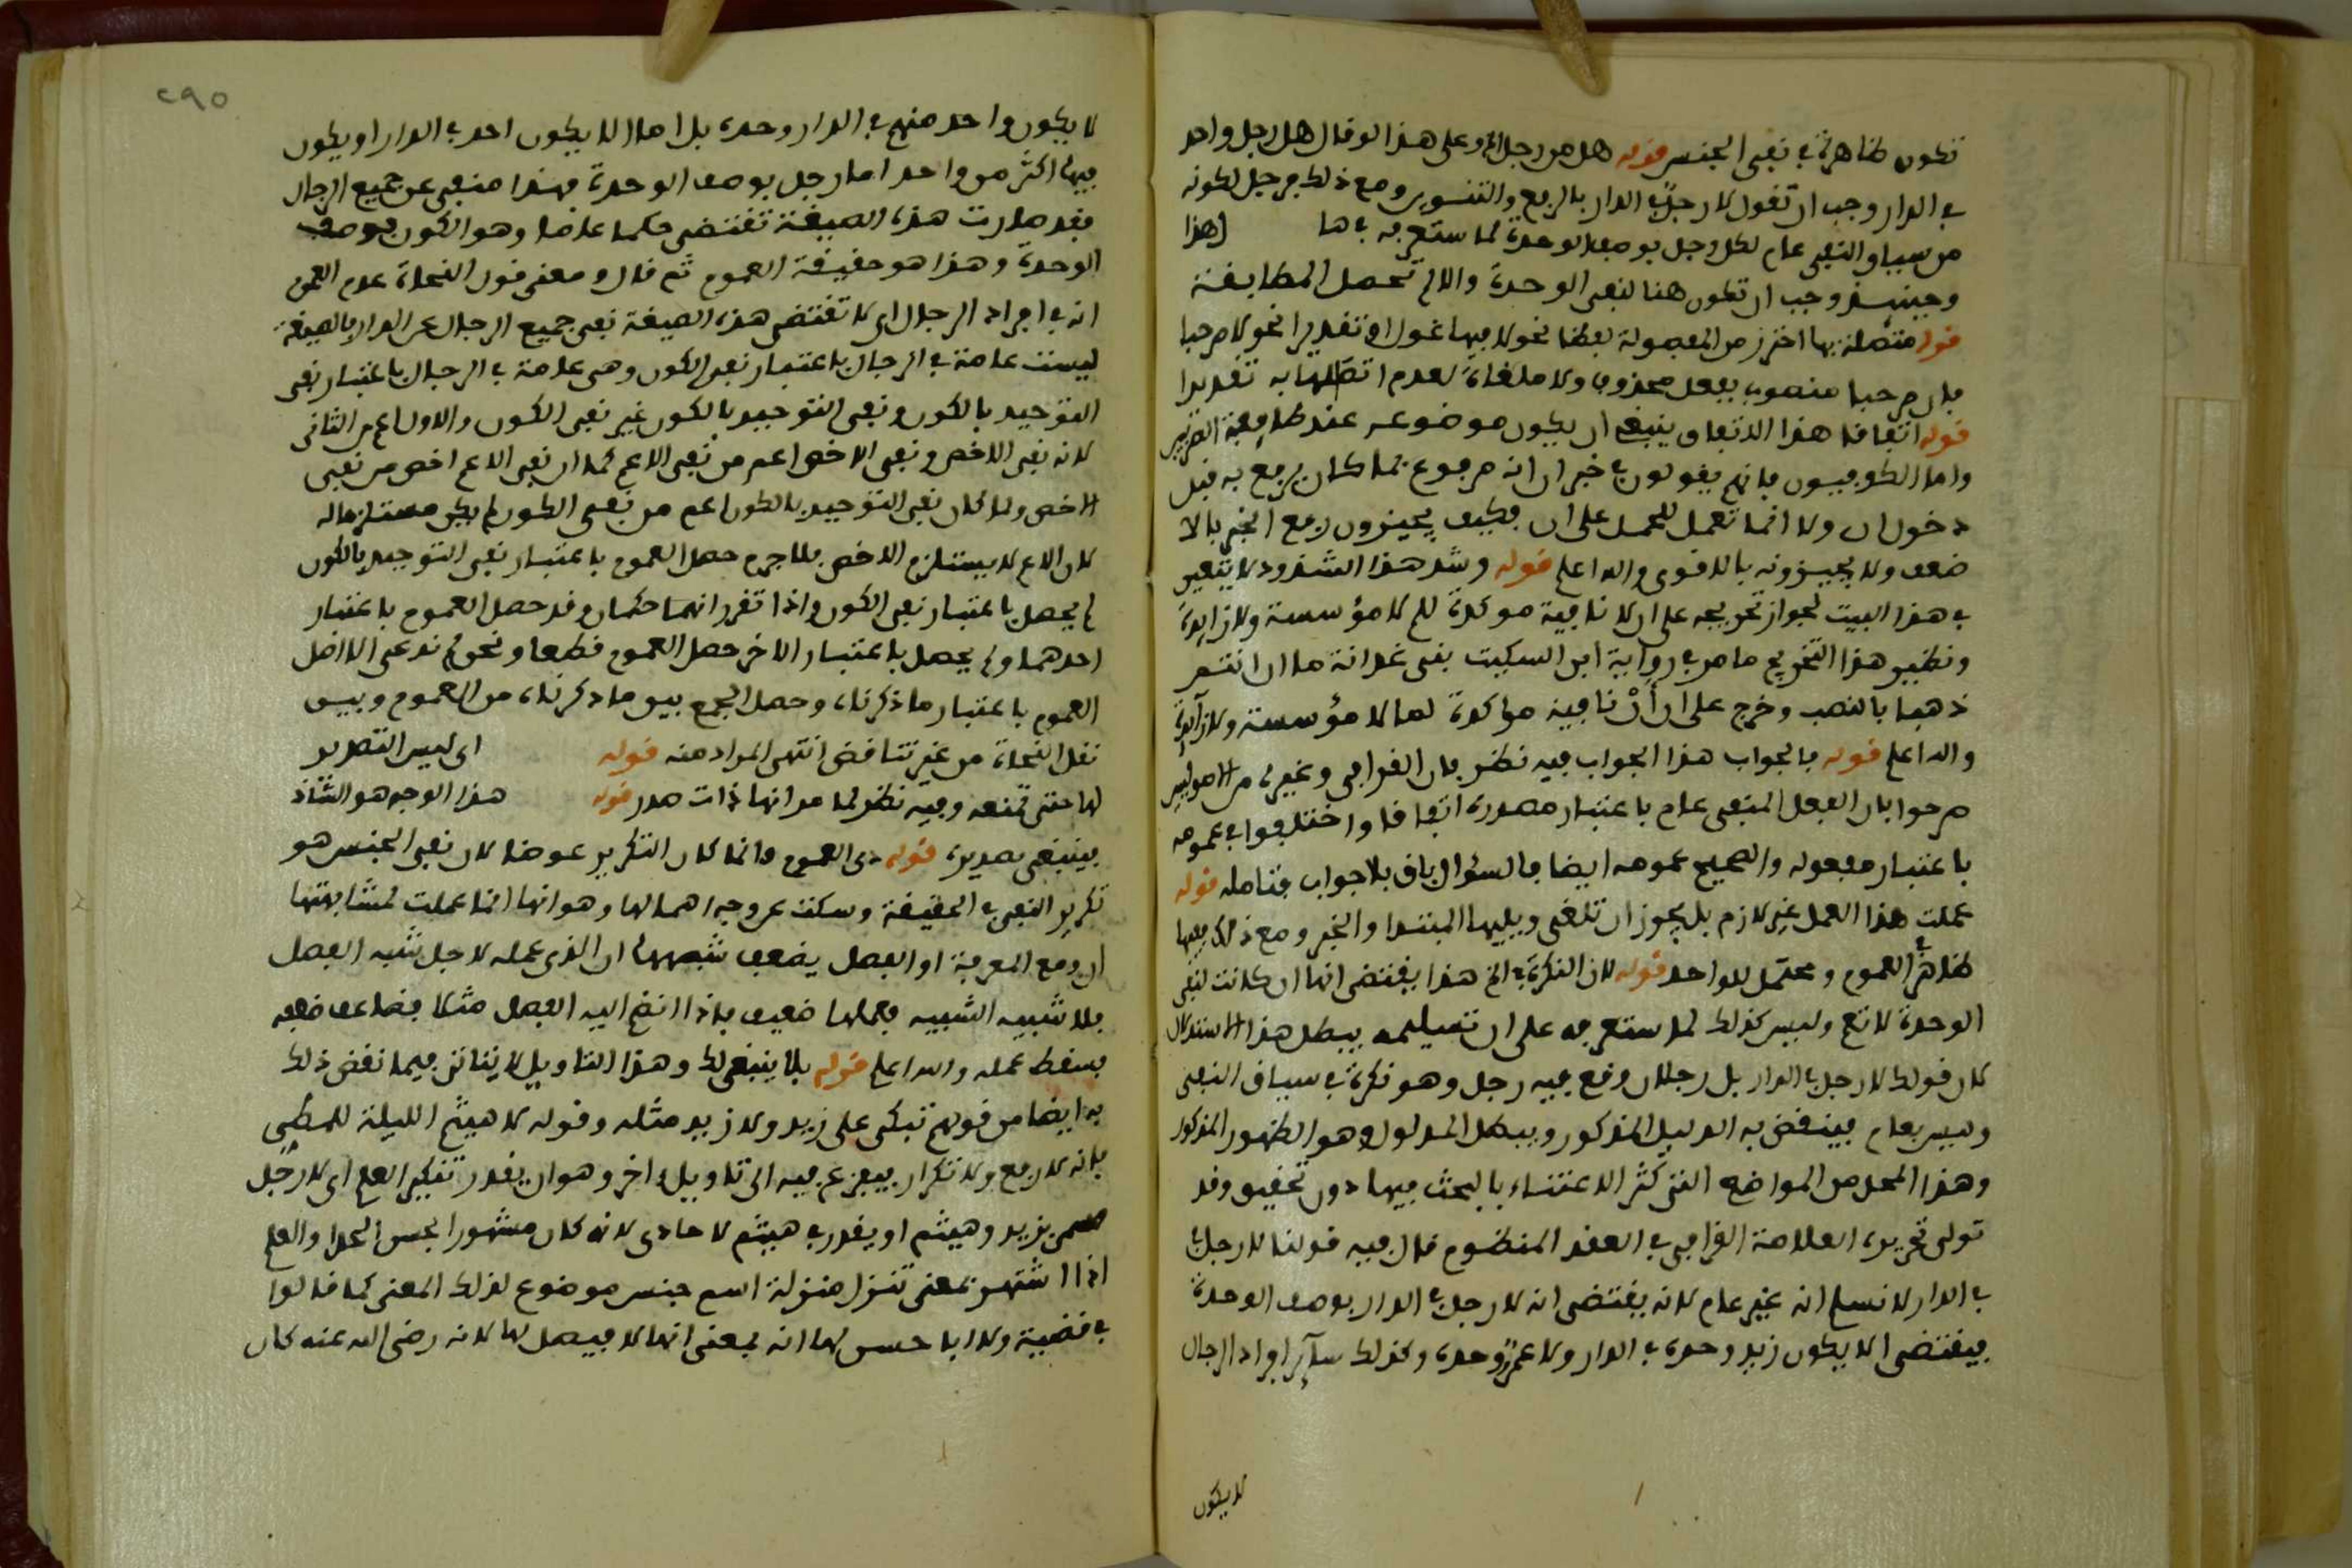 تكون ظاهرة في نفي الجنس قوله هل من رجل الخ وعلى هذا لو قال هل رجل واحد
في الدار وجب ان تقول لا رجل في الدار بالرفع والتنوين ومع ذلك فرجل لكونه
من سياق النفي عام لكل رجل بوصف الوحدة لما ستعرفه في ها
وحينئذ وجب ان تكون هنا لنفي الوحدة والا لم تحصل المطابقة
قوله متصلة بها احترز من المفصولة لفظا نحو لا فيها غول او تقديرا نحو لا مرحبا
فان مرحبا منصوب بفعل محذوف ولا ملغاة لعدم اتصالها به تقديرا
قوله اتفاقا هذا الاتفاق ينبغي ان يكون موضوعه عند طايفة البصريين
واما الكوفيون فانهم يقولون في خبر ان انه مرفوع بما كان يرفع به قبل
دخول ان ولا انما تعمل للحمل على ان فكيف يجيزون رفع الخبر بالا
ضعف ولا يجيزونه بالاقوى والله اعلم قوله وشذ هذا الشذوذ لا يتعين
في هذا البيت لجواز تخريجه على ان لا نافية موكدة للم لا مؤسسة ولا زايدة
ونظير هذا التخريج ما مر في رواية ابن السكيت بني غدانة ما ان انتم
ذهبا بالنصب وخرج على ان أنْ نافية مؤكدة لما لا مؤسسة ولا زايدة
والله اعلم قوله فالجواب هذا الجواب فيه نظر فان القرافي وغيره من الاصوليين
صرحوا بان الفعل المنفي عام باعتبار مصدره اتفاقا واختلفوا في عمومه
باعتبار مفعوله والصحيح عمومه ايضا فالسؤال باق بلا جواب فتامله قوله
عملت هذا العمل غير لازم بل يجوز ان تلغى ويليها المبتدا والخبر ومع ذلك فيها
ظاهرة في العموم ومحتمل للواحد قوله لان النكرة الخ هذا يقتضي انها ان كانت لنفي
الوحدة لا تعم وليس كذلك لما ستعرفه على ان تسليمه يبطل هذا الاستدلال
كان قولك لا رجل في الدار بل رجلان وقع فيه رجل وهو نكرة في سياق النفي
وليس بعام فينقض به الدليل المذكور ويبطل المدلول وهو الظهور المذكور
وهذا المحل من المواضع التي كثر الاعتناء بالبحث فيها دون تحقيق وقد
تولى تحريره العلامة القرافي في العقد المنظوم قال فيه قولنا لا رجل
في الدار لا نسلم انه غير عام لانه يقتضي انه لا رجل في الدار بوصف الوحدة
فيقتضي الا يكون زيد وحده في الدار ولا عمرو وحده وكذلك سآير افراد الرجال
لا يكون
٢٩٥
لا يكون واحد منهم في الدار وحده بل اما الا يكون احد في الدار او يكون
فيها اكثر من واحد اما رجل بوصف الوحدة فهذا منفي عن جميع الرجال
فقد صارت هذه الصيغة تقتضي حكما عاما وهو الكون بوصف
الوحدة وهذا هو حقيقة العموم ثم قال ومعنى قول النحاة عدم العموم
انه في افراد الرجال اي لا تقتضي هذه الصيغة نفي جميع الرجال عن الدار فالصيغة
ليست عامة في الرجال باعتبار نفي الكون وهي عامة في الرجال باعتبار نفي
التوحيد بالكون ونفي التوحيد بالكون غير نفي الكون والاول اعم من الثاني
لانه نفي الاخص ونفي الاخص اعم من نفي الاعم كما ان نفي الاعم اخص من نفي
الاخص ولما كان نفي التوحيد بالكون اعم من نفي الكون لم يكن مستلزما له
لان الاعم لا يستلزم الاخص فلا جرم حصل العموم باعتبار نفي التوحيد بالكون
لم يحصل باعتبار نفي الكون واذا تقرر انهما حكمان وقد حصل العموم باعتبار
احدهما ولم يحصل باعتبار الاخر حصل العموم قطعا ونحن لم ندعي الا اصل
العموم باعتبار ما ذكرناه وحصل الجمع بين ما ذكرناه من العموم وبين
نقل النحاة من غير تناقض انتهى المراد منه قوله اي ليس التصدير
لها حتى تمنعه وفيه نظر لما مر انها ذات صدر قوله هذا الوجه هو الشاذ
فينبغي تصديره قوله دى العموم وانما كان التكرير عوضا لان نفي الجنس هو
تكرير النفي في الحقيقة وسكت عن وجه اهمالها وهو انها انما عملت لمشابهتها
ان ومع المعرفة او الفصل يضعف شبهها ان الذي عمله لاجل شبه الفعل
فلا شبيه الشبيه فعملها ضعيف فاذا انضم اليه الفصل مثلا تضاعف ضعفه
فسقط عمله والله اعلم قوله فلا ينبغي لك وهذا التاويل لا يتاتى فيما نقض ذلك
به ايضا من قولهم تبكى على زيد ولا زيد مثله وقوله لا هيثم الليلة للمطي
فانه لا رفع ولا تكرار فيفزع فيه الى تاويل اخر وهو ان يقدر تنكير العلم اي لا رجل
مسمى بزيد وهيثم او يقدر في هيثم لا حادى لانه كان مشهورا بحسن الحدا والعلم
اذا اشتهر بمعنى تنزل منزلة اسم جنس موضوع لذلك المعنى كما قالوا
في قضية ولا ابا حسن لها انه بمعنى انها لا فيصل لها لانه رضي الله عنه كان